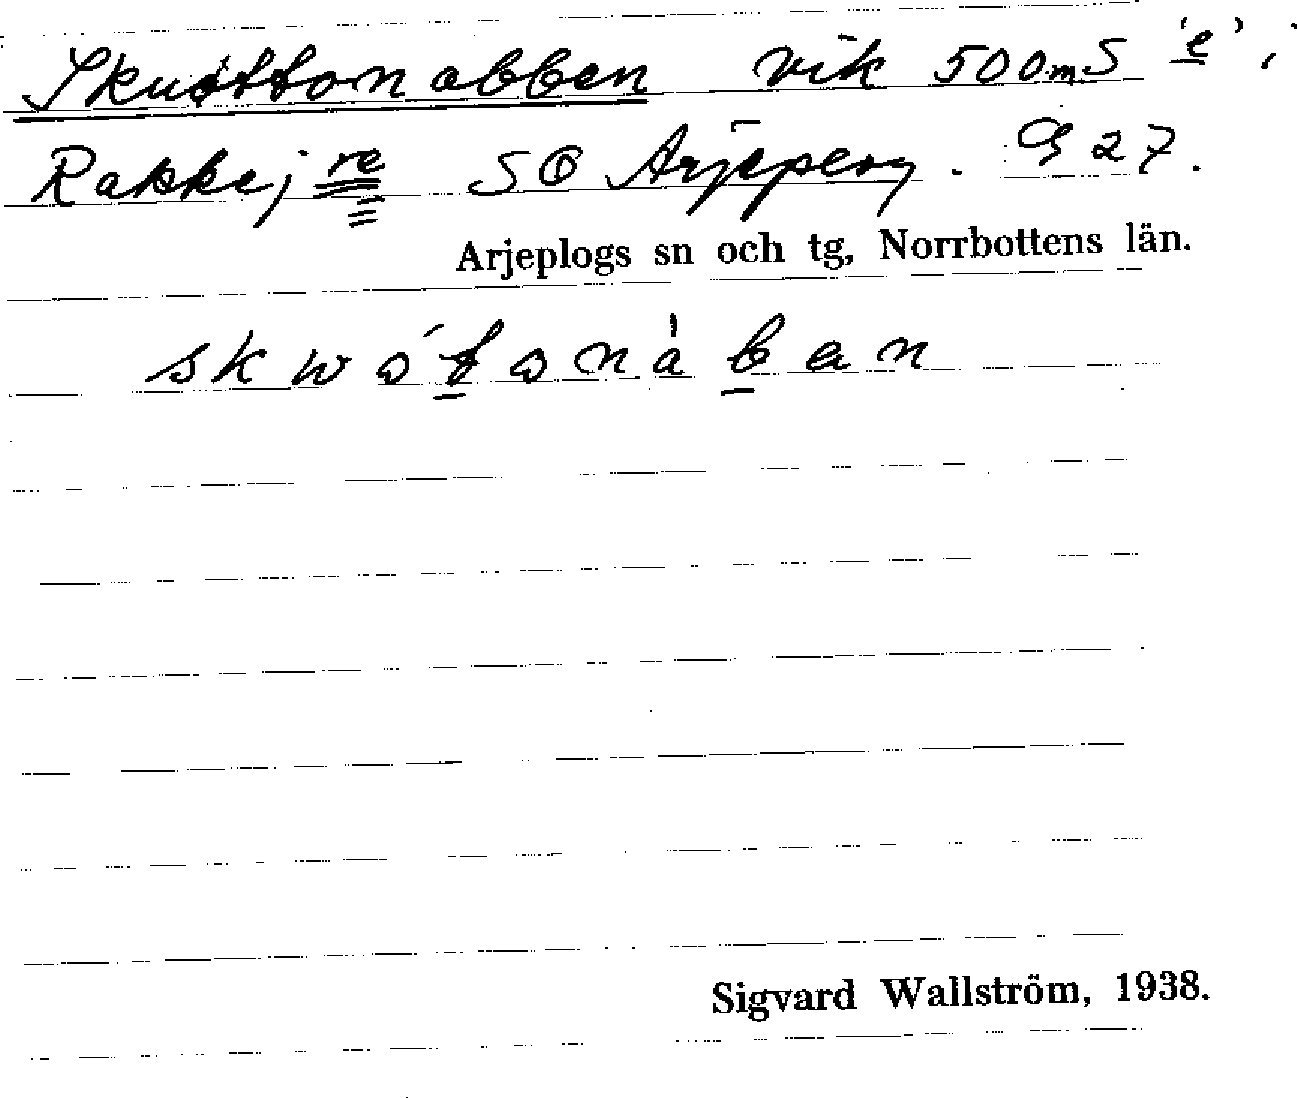 Skuottonabben vik 500 m S 'e' i
Rakkej re SO Arjeplog. G 27.
Arjeplogs sn och tg, Norrbottens län.
skwótonàban
Sigvard Wallström, 1938.